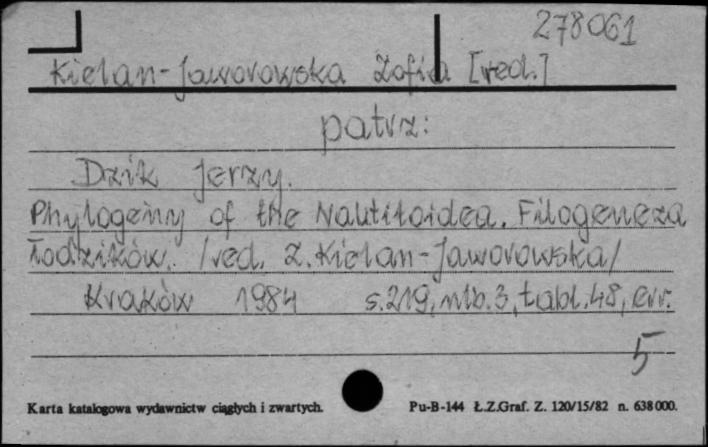 278061
Kielan-Jaworowska Zofia [red.]
patrz:
Dzik Jerzy.
Phylogeny of the Nautiloidea. Filogeneza
Łodzików. /red. Z. Kielan-Jaworowska/
Kraków 1984 s. 219, nlb. 3, tabl. 48, err.
5
Karta katalogowa wydawnictw ciągłych i zwartych. Pu-B-144 Ł.Z.Graf. Z. 120/15/82 n. 638 000.